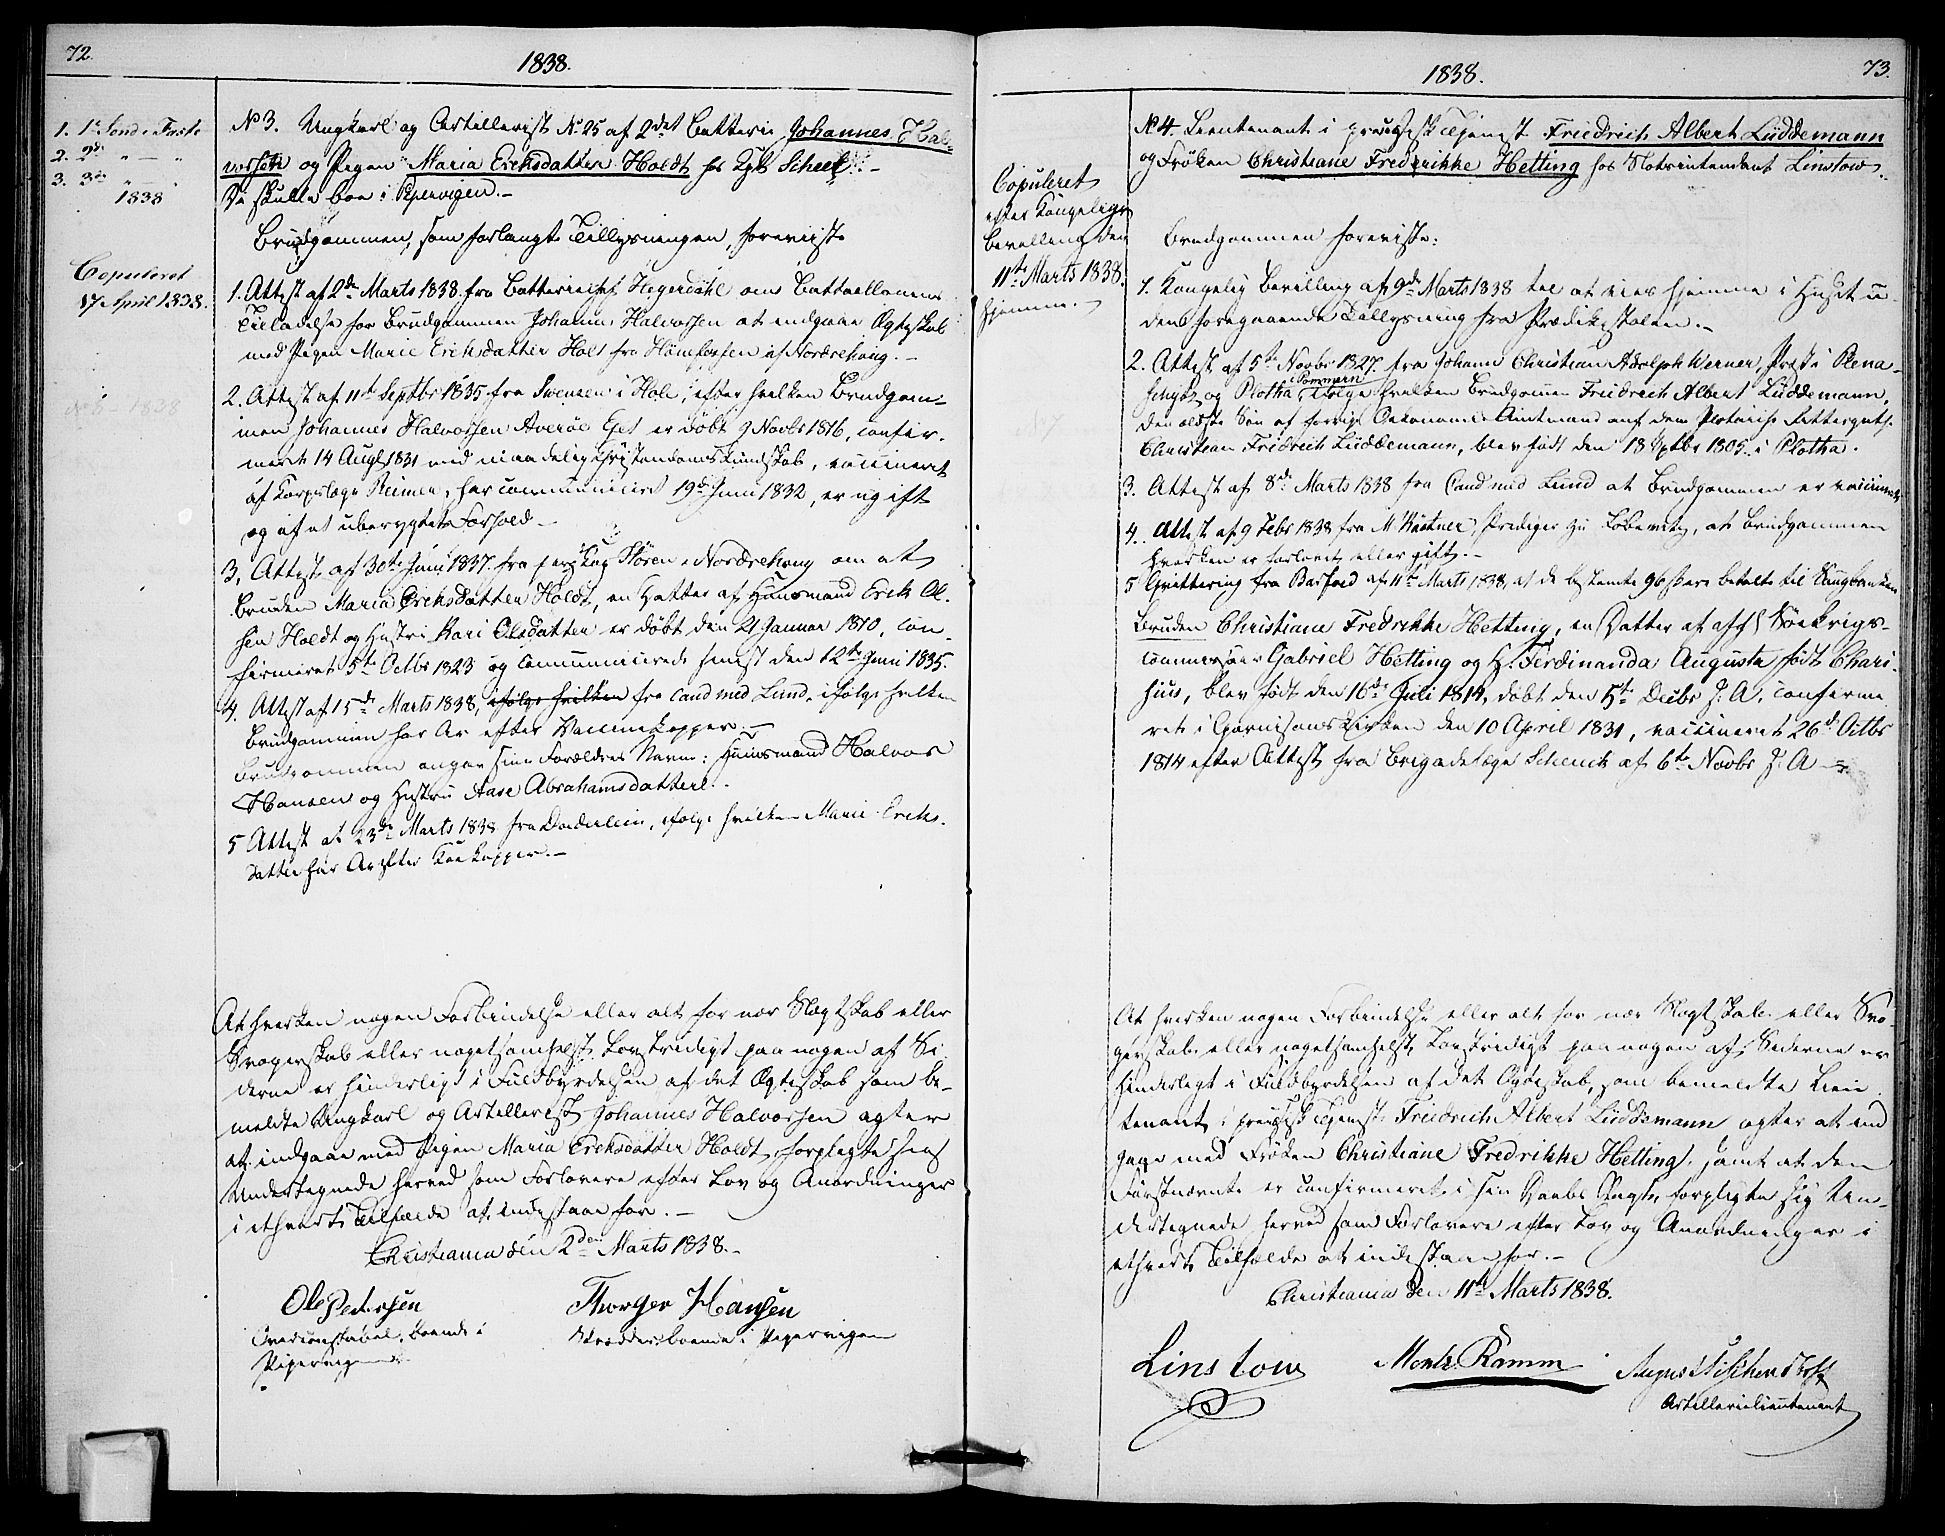 72.
1838.
1. 1ste Sønd. i Faste
2. 2den " — "
3. 3die " — "
1838
Copuleret
17 April 1838.
No 3. Ungkarl og Artillerist No 25 af 2det Batterie Johannes Hal-
vorsen og Pigen Maria Ericksdatter Holdt hos Kpt. Scheel. —
De skulle boe i Pipervigen. —
Brudgommen, som forlangte Tillysningen, foreviiste
1. Attest af 2den Marts 1838 fra Batteriechef Hegerdahl om Battaillonens
Tilladelse for Brudgommen Johannes Halvorsen at indgaae Ægteskab
med Pigen Marie Ericksdatter Holt fra Hønefossen af Nordrehoug. —
2. Attest af 11te Septbr 1835 fra Svensen i Hole, efter hvilken Brudgom-
men Johannes Halvorsen Averøe Ejet er døbt 9 Novbr 1816, confir-
meret 14 Augt 1831 med maadelig Christendoms Kundskab, vaccineret
af Korpslæge Heimen, har communiceret 19de Juni 1832, er ugift
og af et uberygtet Forhold. —
3. Attest af 30te Juni 1837 fra pers. Cap. Støren i Nordrehoug om at
Bruden Maria Ericksdatter Holdt, en Datter af Huusmand Erick Ol-
sen Holdt og Hustru Kari Olsdatter er døbt den 21 Januar 1810, con-
firmeret 5te Octbr 1823 og communicerede sidst den 12te Juni 1835.
4. Attest af 15de Marts 1838, ifølge hvilken fra Cand med Lund, ifølge hvilken
Brudgommen har Ar efter Vaccinekopper. —
Brudgommen angav sine Forældres Navne: Huusmand Halvor
Hansen og Hustru Aase Abrahamsdatter. —
5 Attest af 23de Marts 1838 fra Døderlein, ifølge hvilken Marie Ericks-
datter har Ar efter Koekopper. —
At hverken nogen Forbindelse eller alt for nær Slægtskab eller
Svogerskab eller nogetsomhelst Lovstridigt paa nogen af Si-
derne er hinderligt i Fuldbyrdelsen af det Ægteskab som be-
meldte Ungkarl og Artillerist Johannes Halvorsen agter
at indgaae med Pigen Maria Ericksdatter Holdt, forpligte sig
Undertegnede herved som Forlovere efter Lov og Anordninger
i ethvert Tilfælde at indestaae for. —
Christiania den 2den Marts 1838. —
Ole Pedersen
Overconstabel, boende i
Pipervigen
Thorger Hansen
Skrædder, boende i Pipervigen
1838.
73.
Copuleret
efter Kongelig
Bevilling den
11te Marts 1838.
hjemme. —
No 4. Lieutenant i preussisk Tjeneste Friedrich Albert Lüddemann
og Frøken Christiane Fredrikke Hetting hos Slotsintendant Linstow.
Brudgommen foreviste:
1. Kongelig Bevilling af 9de Marts 1838 til at vies hjemme i Huset u-
den foregaaende Tillysning fra Prædikestolen. —
2. Attest af 5te Novbr 1827 fra Johann Christian Adolph Werner, Præst i
og Plotha i Pommern, ifølge hvilken Brudgommen Friedrich Albert Lüddemann,
den ældste Søn af forrige Oekonomie Amtmand auf dem
Christian Friedrich Lüddemann, blev født den 18 Septbr 1805 i Plotha.
3. Attest af 8de Marts 1838 fra Cand med Lund at Brudgommen er vaccineret
4. Attest af 9 Febr 1838 fra M Küstner, Prediger zu, at Brudgommen
hverken er forlovet eller gift. —
5 Qvittering fra Barfoed af 11te Marts 1838, at de bestemte 96 ere betalte til
Bruden Christiane Fredrikke Hetting, en Datter af afg. Søekrigs-
commissair Gabriel Hetting og H. Ferdinanda Augusta født Chari-
sius, blev født den 16de Juli 1814, døbt den 5te Decbr s. A. confirme-
ret i Garnisons Kirken den 10 April 1831, vaccineret 26de Octbr
1814 efter Attest fra Brigadelæge Schenck af 6te Novbr s. A —
At hverken nogen Forbindelse eller alt for nær Slægtskab eller Svo-
gerskab eller nogetsomhelst Lovstridigt paa nogen af Siderne er
hinderligt i Fuldbyrdelsen af det Ægteskab, som bemeldte Lieu-
tenant i preussisk Tjeneste Friedrich Albert Lüddemann agter at ind-
gaae med Frøken Christiane Fredrikke Hetting, samt at den
Førstnævnte er confirmeret i sin Daabs Pagt, forpligte sig Un-
dertegnede herved som Forlovere efter Lov og Anordninger i
ethvert Tilfælde at indestaae for. —
Christiania den 11te Marts 1838.
Linstow
Ramm
August
Artillerielieutenant